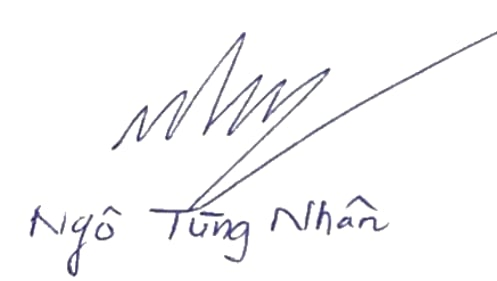 Ngô Tùng Nhân